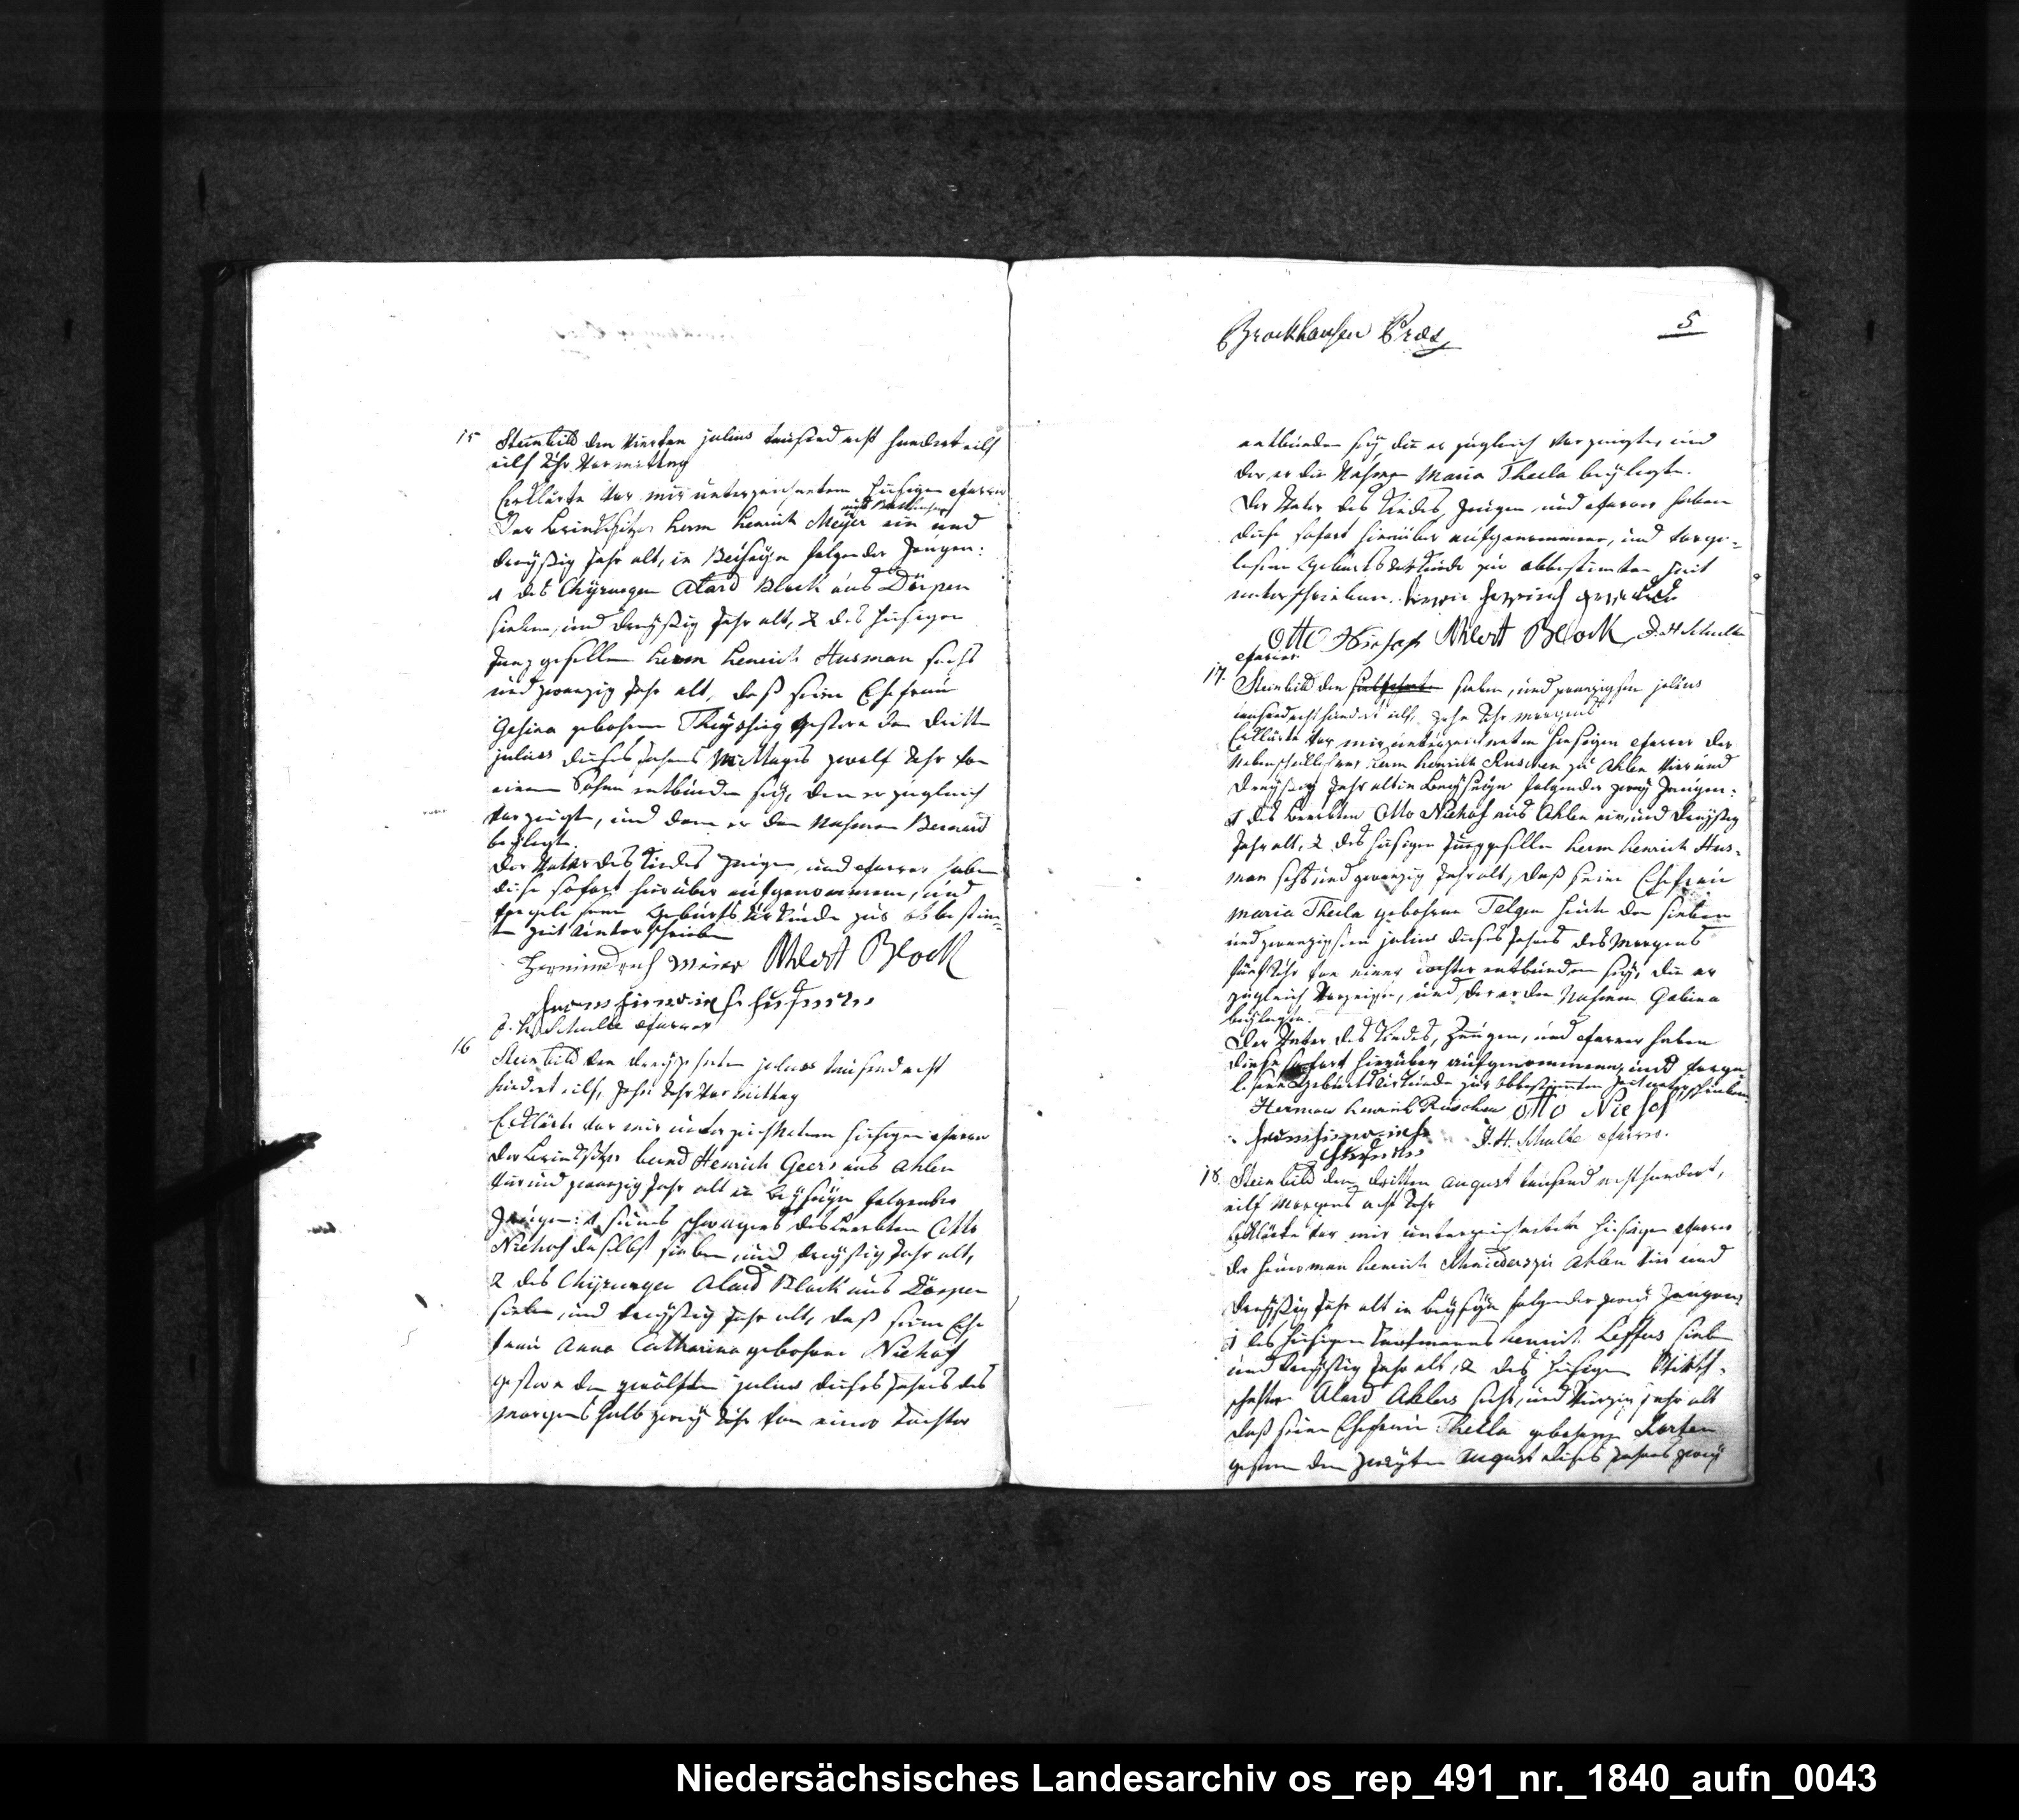 15 Steinbild den vierten julius tausend acht hundert eilf
eilf Uhr Vormittag
Erklärte vor mir unterzeichnetem hiesigen Pfarrer
Der Brinksitzer Herm Henrich Meyer ein und
dreyßig Jahr alt, in Beiseyn folgender Zeugen:
1 des Chyrurgen Alard Block aus Dörpen
sieben, und dreyßig Jahr alt, 2 des hiesigen
Junggesellen Herm Henrich Husman sechs
und zwanzig Jahr alt, daß seine Ehefrau
Gesina gebohrne gestern den dritten
julius dieses Jahres Mittags zwölf Uhr von
einem Sohne entbunden sey, den er zugleich
vorzeigte, und dem er den Nahmen Bernard
beylegte.
Der Vater des Kindes Zeugen, und Pfarrer haben
diese sofort hierüber aufgenommene, und
vorgelesene Geburts Urkunde zur obbestim-
ten Zeit unterschrieben
Meier Ahlert Block
J. H. Schulte Pfarrer
16 Steinbild den dreyzehnten julius tausend acht
hundert eilf, zehn Uhr Vormittag
Erklärte vor mir unterzeichnetem hiesigen Pfarrer
der Brinksitzer Bernd Henrich Geers aus Ahlen
vier und zwanzig Jahr alt in Beyseyn folgender
Zeugen: 1 seines Schwagers des Otto
Niehof daselbst sieben, und dreyßig Jahr alt,
2 des Chyrurgen Alard Block aus Dörpen
sieben, und dreyßig Jahr alt, daß seine Ehe
frau Anna Catharina gebohrne Niehof
gestern den zwölften julius dieses Jahres des
Morgens halb zwey Uhr von einer Tochter
Brockhausen Præs
5
entbunden sey, die er zugleich vorzeigte, und
der er die Nahmen Maria Theila beylegte.
Der Vater des Kindes, Zeugen, und Pfarrer haben
diese sofort hierüber aufgenommene, und vorge-
lesene Geburts Urkunde zur obbestimten Zeit
unterschrieben.
Otto Niehof Ahlert Block J. H Schulte
Pfarrer
17. Steinbild den sieben, und zwanzigsten julius
tausend acht hundert eilf, zehn Uhr morgens
Erklärte vor mir unterzeichnetem hiesigen Pfarrer der
Herm Henrich Ruschen zu Ahlen vier und
dreyßig Jahr alt in Beyseyn folgender zwey Zeugen:
1 des Otto Niehof aus Ahlen und dreyßig
Jahr alt, 2 des hiesigen Junggesellen Herm Henrich Hus-
man sechs und zwanzig Jahr alt, daß seine Ehefrau
Maria Theila gebohrne Telgen heute den sieben
und zwanzigsten julius dieses Jahres des Morgens
fünf Uhr von einer Tochter entbunden sey, die er
zugleich vorzeigte, und der er den Nahmen Gebina
beylegte.
Der Vater des Kindes, Zeugen, und Pfarrer haben
diese sofort hierüber aufgenommene, und vorge-
lesene Geburts Urkunde zur obbestimmten Zeit unterschrieben
Herman Henrich Ruschen Otto Niehof
J. H. Schulte Pfarrer.
18. Steinbild den dritten august tausend acht hundert,
eilf Morgens acht Uhr
Erklärte vor mir unterzeichnetem hiesigen Pfarrer
der Henrich Schnieders zu Ahlen und
dreyßig Jahr alt in Beyseyn folgender zwey Zeugen:
1 des hiesigen Kaufmanns Henrich Leffers sieben
und dreyßig Jahr alt, 2 des hiesigen
Alard Ahlers sechs, und vierzig Jahr alt
daß seine Ehefrau Theila gebohrne Korten
gestern den zweyten August dieses Jahres zwey
Niedersächsisches Landesarchiv os_rep_491_nr._1840_aufn_0043